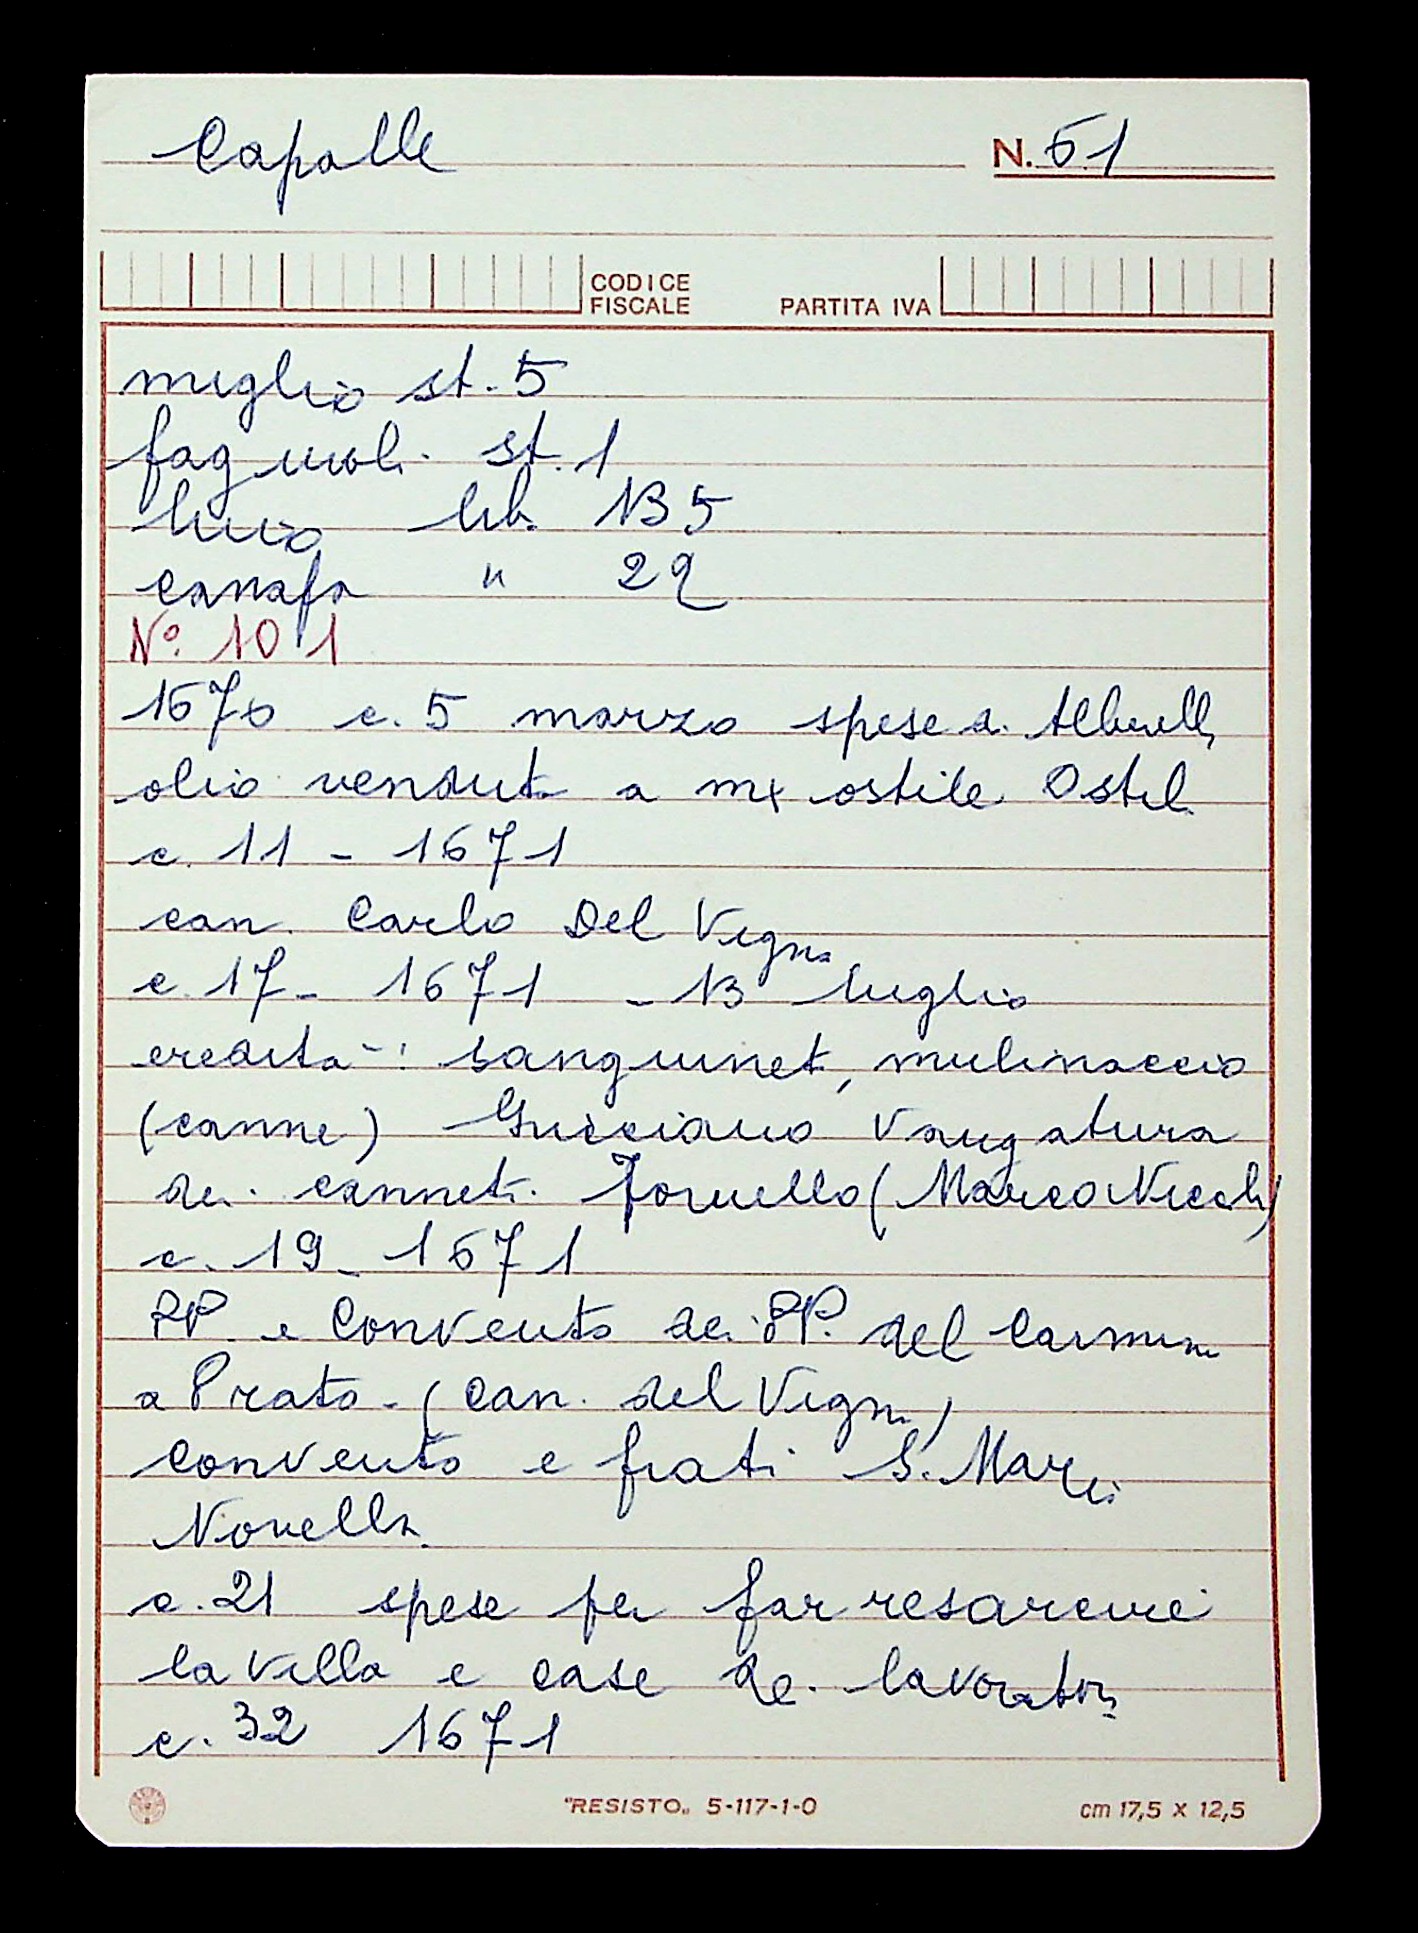 Capalle N. 51
CODICE
FISCALE PARTITA IVA
miglio st. 5
fagiuoli st. 1
lino lib. 135
canapa " 22
N.° 101
1670 c. 5 marzo spese di
olio venduto a mx ostile Ostil.
c. 11 - 1671
can. Carlo Del Vigna
c. 17 - 1671 - 13 luglio
eredità: sanguineti, mulinaccio
(canne) Gricciano Vangatura
dei canneti. Tornello (Marco Niccoli)
c. 19 - 1671
PP. e Convento dei PP. del Carmine
a Prato - (Can. del Vigna)
convento e frati S. Maria
Novella.
c. 21 spese per far resarcire
la villa e case de. lavoratori
c. 32 1671
"RESISTO„ 5-117-1-0 cm 17,5 x 12,5